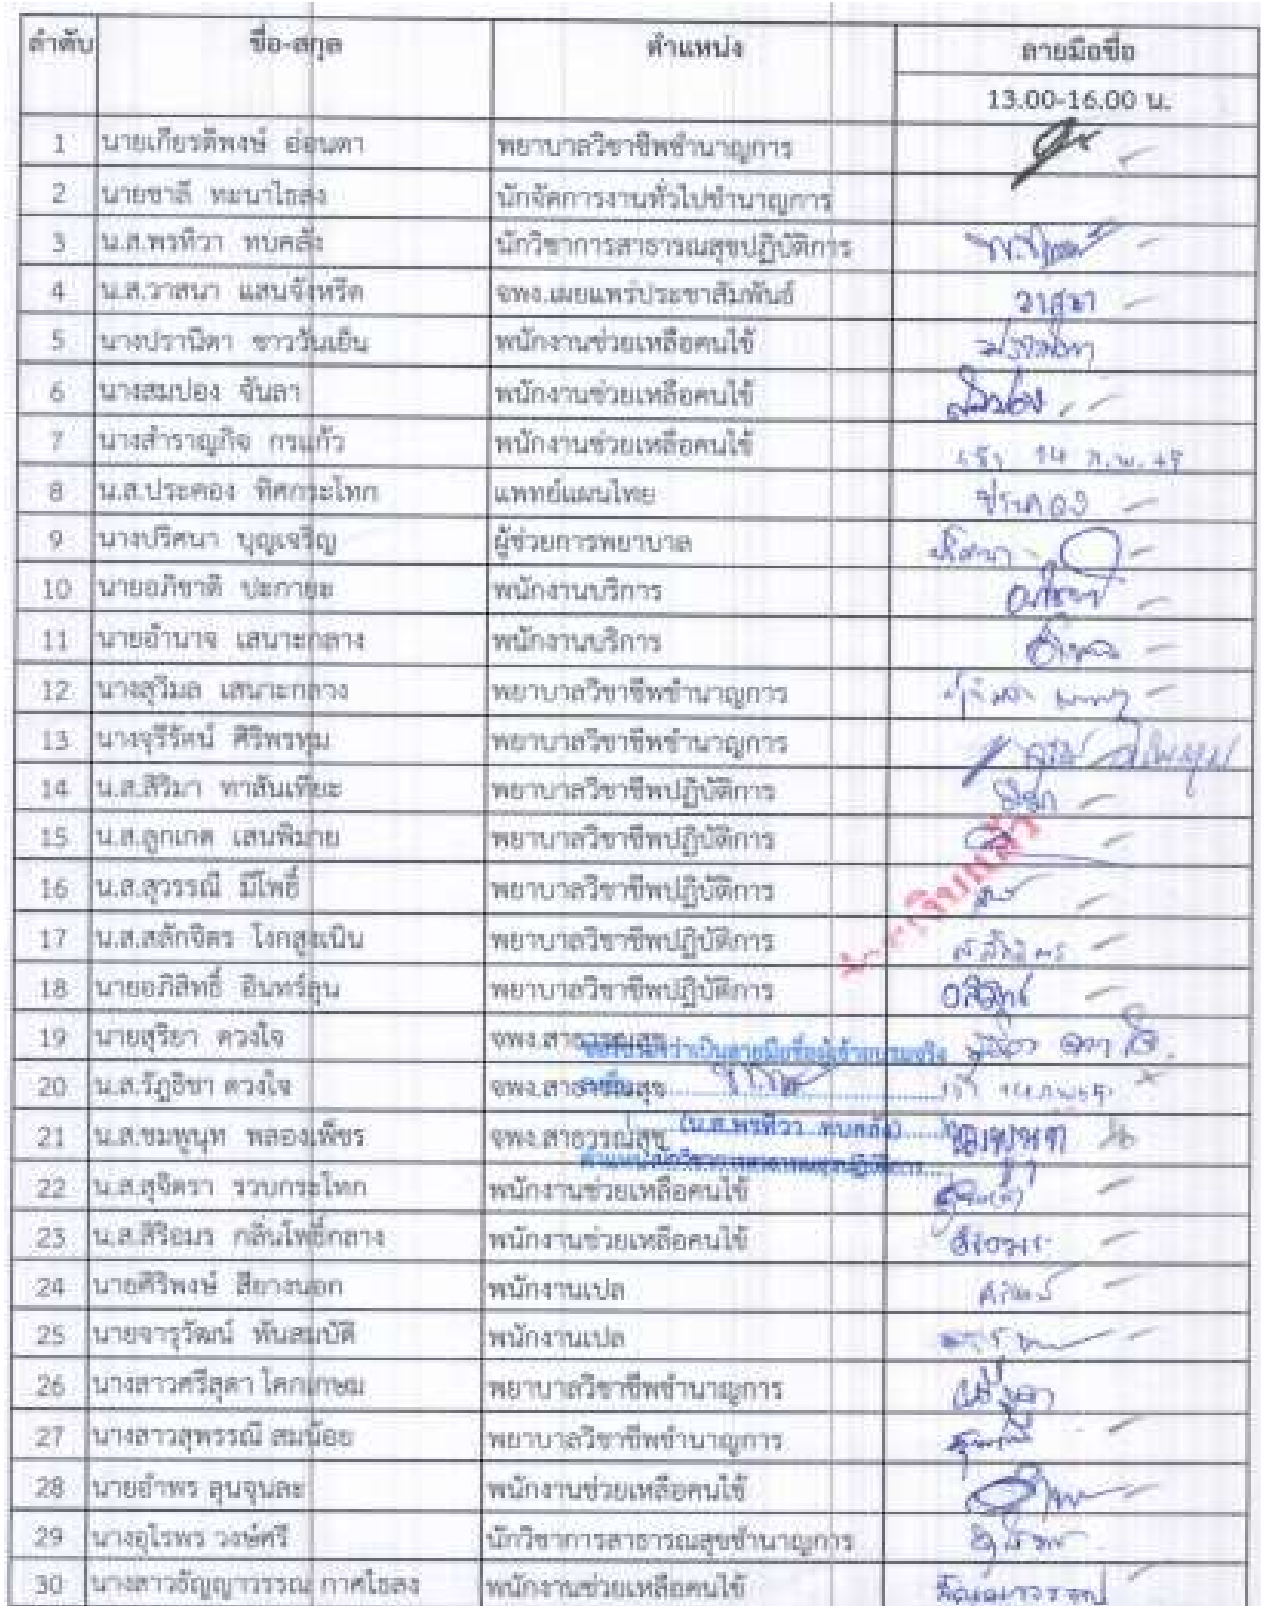 ลำดับ ชื่อ-สกุล ตำแหน่ง ลายมือชื่อ
13.00-16.00 น.
1 นายเกียรติพงษ์ อ่อนตา พยาบาลวิชาชีพชำนาญการ
2 นายชาลี ทะนาไธสง นักจัดการงานทั่วไปชำนาญการ
3 น.ส.พรทิวา ทบคลัง นักวิชาการสาธารณสุขปฏิบัติการ
4 น.ส.วาสนา แสนจังหรีด จพง.เผยแพร่ประชาสัมพันธ์ วาสนา
5 นางปรานิดา ชาววันเย็น พนักงานช่วยเหลือคนไข้
6 นางสมปอง จันลา พนักงานช่วยเหลือคนไข้ สมปอง
7 นางสำราญกิจ กรแก้ว พนักงานช่วยเหลือคนไข้ 14 ก.พ.
8 น.ส.ประคอง ทิศกระโทก แพทย์แผนไทย ประคอง
9 นางปริศนา บุญเจริญ ผู้ช่วยการพยาบาล ปริศนา
10 นายอภิชาติ ปะกายะ พนักงานบริการ
11 นายอำนาจ เสนาะกลาง พนักงานบริการ
12 นางสุวิมล เสนาะกลาง พยาบาลวิชาชีพชำนาญการ
13 นางจุรีรัตน์ ศิริพรทุม พยาบาลวิชาชีพชำนาญการ
14 น.ส.สิริมา ทาสันเทียะ พยาบาลวิชาชีพปฏิบัติการ
15 น.ส.ลูกเกด เสนพิมาย พยาบาลวิชาชีพปฏิบัติการ
16 น.ส.สุวรรณี มีโพธิ์ พยาบาลวิชาชีพปฏิบัติการ
17 น.ส.สลักจิตร โงกสูงเนิน พยาบาลวิชาชีพปฏิบัติการ สลักจิตร
18 นายอภิสิทธิ์ อินทร์ลุน พยาบาลวิชาชีพปฏิบัติการ
19 นายสุริยา ดวงใจ จพง.สาธารณสุข
ขอรับรองว่าเป็นลายมือชื่อผู้เข้าอบรมจริง
20 น.ส.รัฏธิชา ดวงใจ จพง.สาธารณสุข
(น.ส.พรทิวา ทบคลัง)
21 น.ส.ชมพูนุท พลองเพ็ชร จพง.สาธารณสุข
ตำแหน่งนักวิชาการสาธารณสุขปฏิบัติการ
22 น.ส.สุจิตรา รวบกระโทก พนักงานช่วยเหลือคนไข้
23 น.ส.สิริอมร กลิ่นโพธิ์กลาง พนักงานช่วยเหลือคนไข้ สิริอมร
24 นายศิริพงษ์ สียางนอก พนักงานเปล
25 นายจารุวัฒน์ พันสมบัติ พนักงานเปล
26 นางสาวศรีสุดา โคกเกษม พยาบาลวิชาชีพชำนาญการ
27 นางสาวสุพรรณี สมน้อย พยาบาลวิชาชีพชำนาญการ
28 นายอำพร ลุนจุนละ พนักงานช่วยเหลือคนไข้
29 นางอุไรพร วงษ์ศรี นักวิชาการสาธารณสุขชำนาญการ
30 นางสาวธัญญาวรรณ กาศไธสง พนักงานช่วยเหลือคนไข้ ธัญญาวรรณ